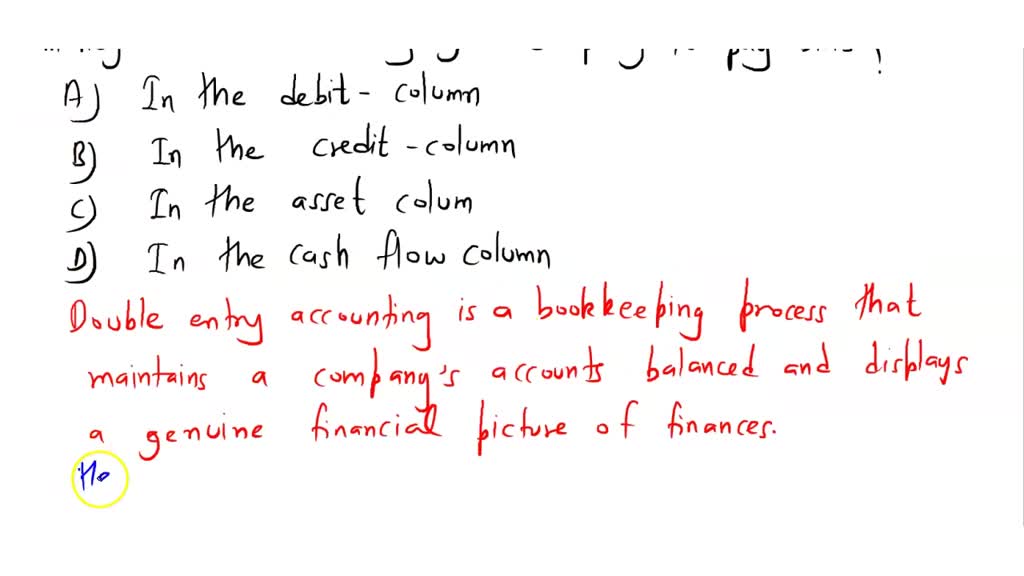 A) In the debit - column
B) In the credit - column
C) In the asset colum
D) In the cash flow column
Double entry accounting is a bookkeeping process that
maintains a company's accounts balanced and displays
a genuine financial picture of finances.